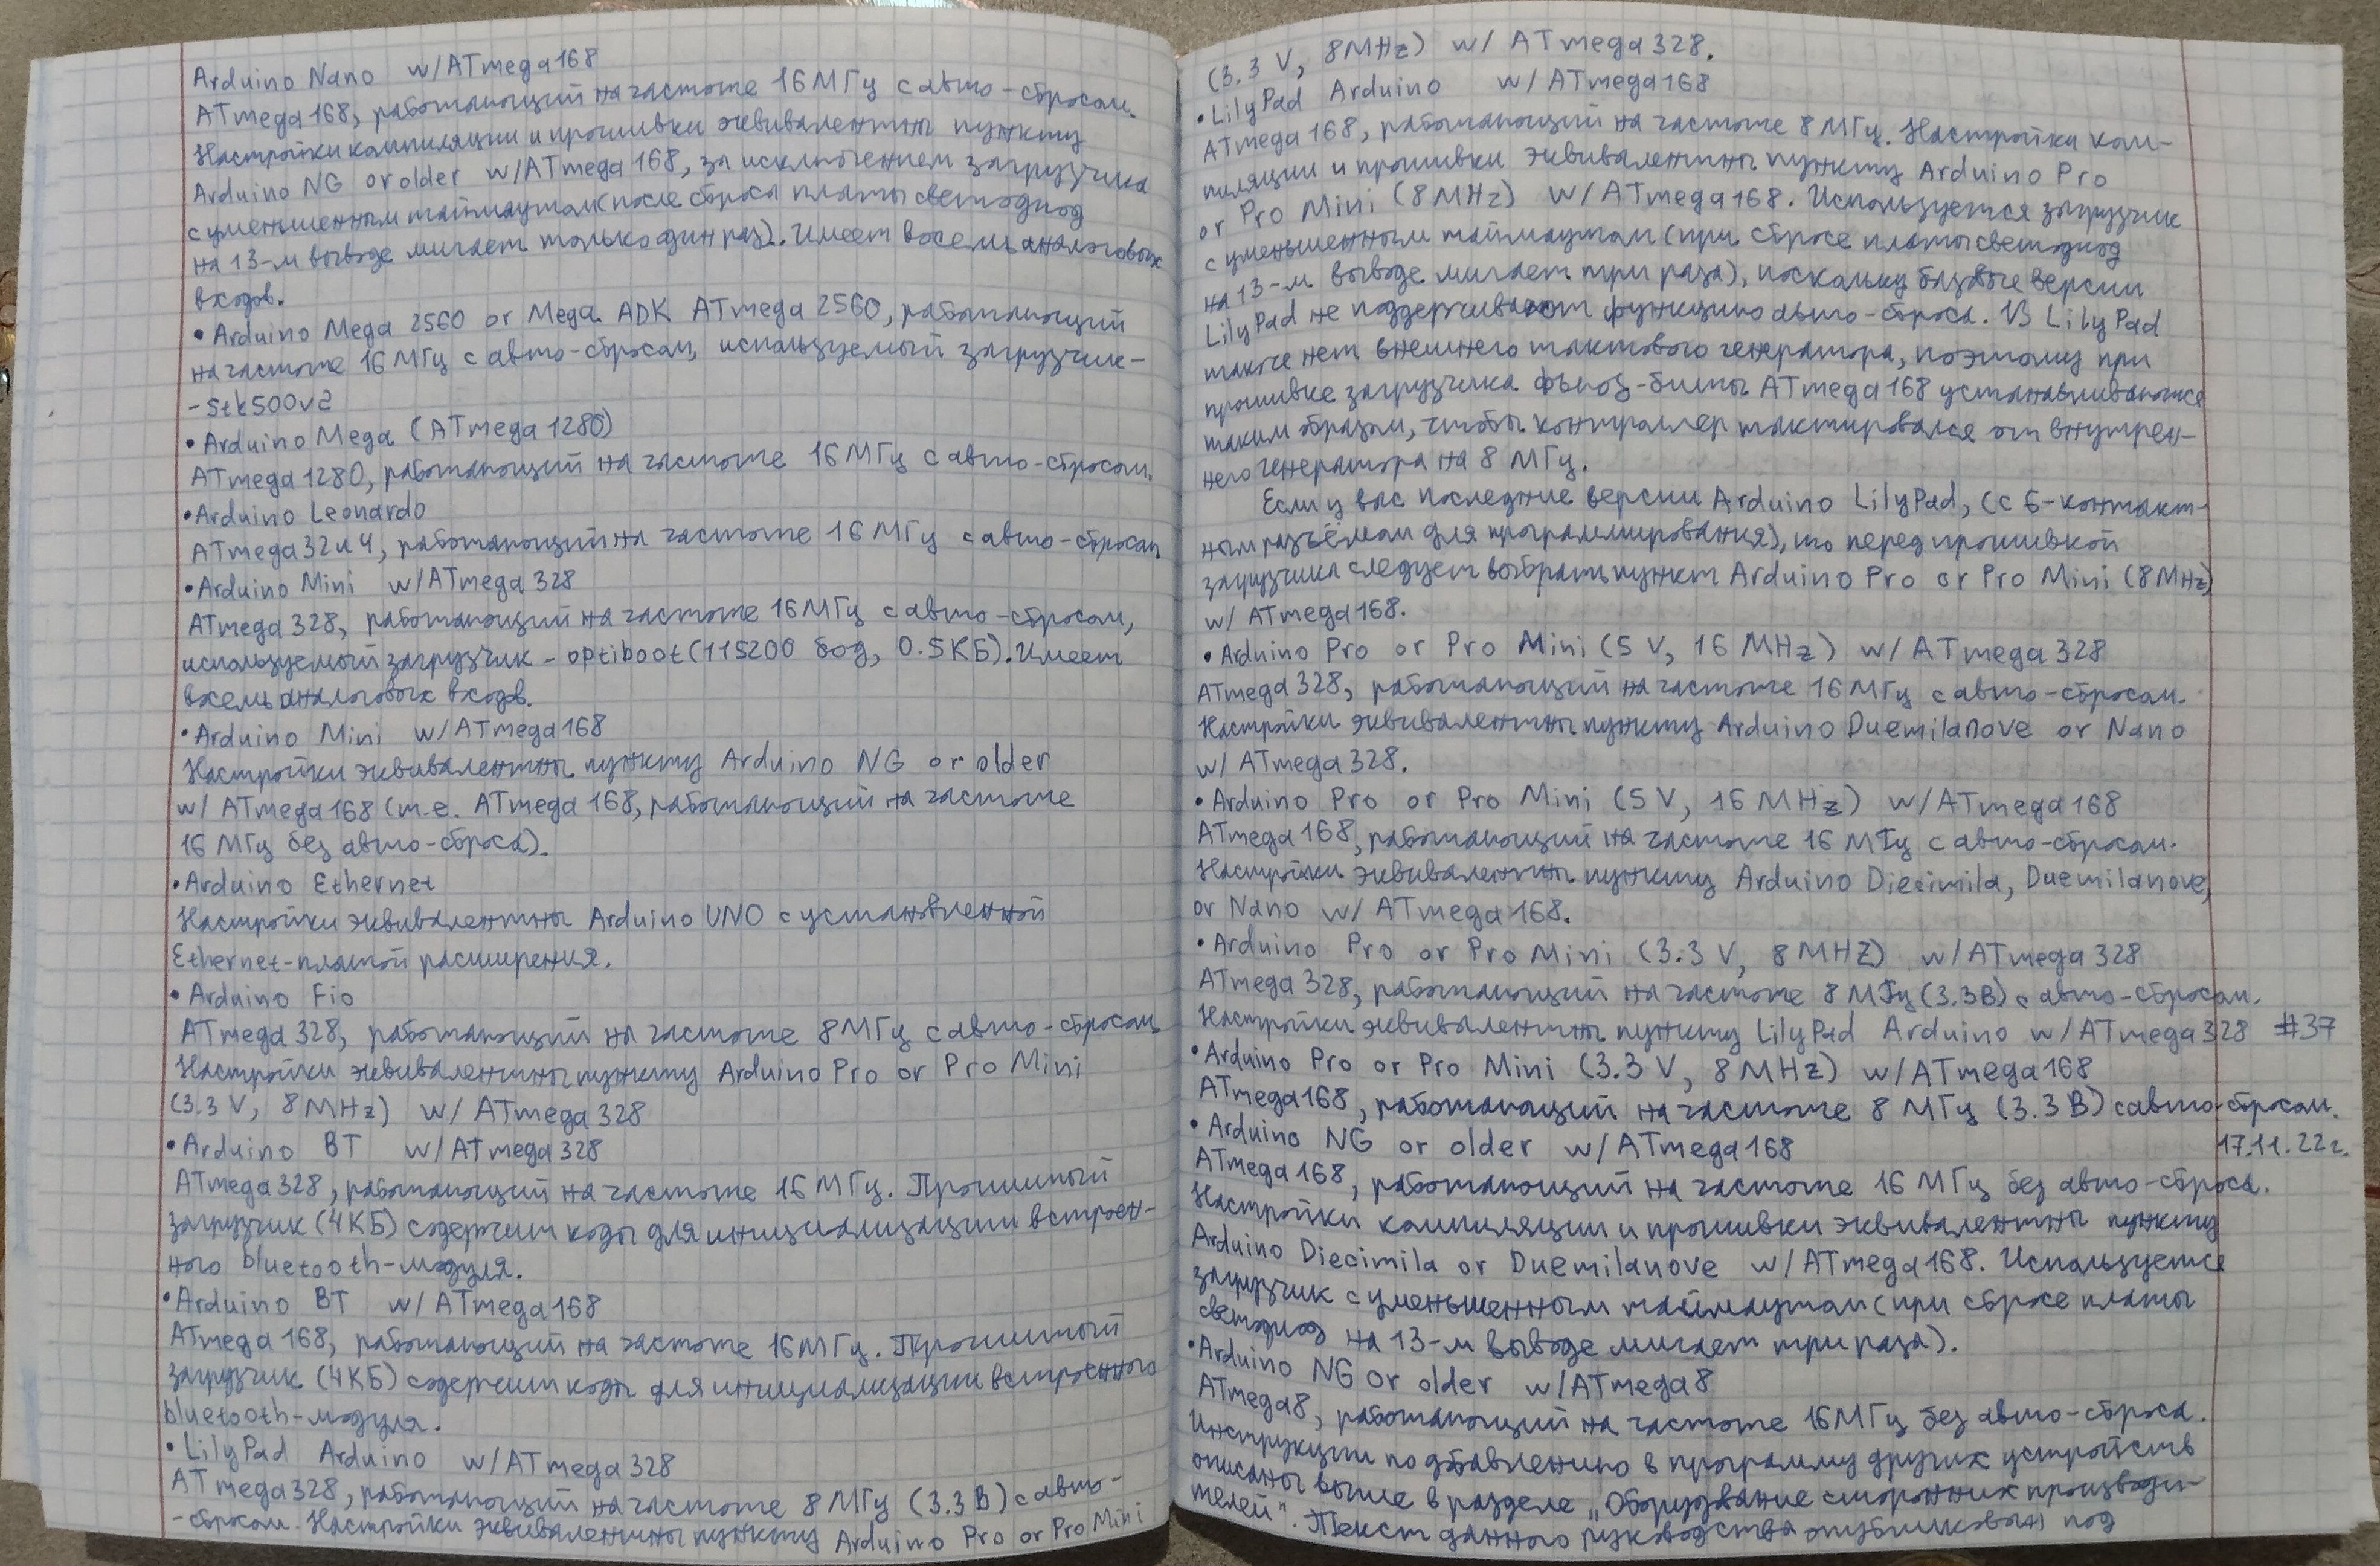 Arduino Nano w/ATmega168
ATmega168, работающий на частоте 16МГц с авто-сбросом.
Настройки компиляции и прошивки эквивалентны пункту
Arduino NG or older w/ATmega168, за исключением загрузчика
с уменьшенным таймаутом (после сброса платы светодиод
на 13-м выводе мигает только один раз). Имеет восемь аналоговых
входов.
• Arduino Mega 2560 or Mega ADK ATmega 2560, работающий
на частоте 16 МГц с авто-сбросом, используемый загрузчик-
-Stk500v2
• Arduino Mega (ATmega1280)
ATmega1280, работающий на частоте 16МГц с авто-сбросом.
• Arduino Leonardo
ATmega32u4, работающий на частоте 16МГц с авто-сбросом.
• Arduino Mini w/ATmega328
ATmega328, работающий на частоте 16МГц с авто-сбросом,
используемый загрузчик - optiboot (115200 бод, 0.5КБ). Имеет
восемь аналоговых входов.
• Arduino Mini w/ATmega168
Настройки эквивалентны пункту Arduino NG or older
w/ ATmega168 (т.е. ATmega168, работающий на частоте
16 МГц без авто-сброса).
• Arduino Ethernet
Настройки эквивалентны Arduino UNO с установленной
Ethernet-платой расширения.
• Arduino Fio
ATmega328, работающий на частоте 8МГц с авто-сбросом
Настройки эквивалентны пункту Arduino Pro or Pro Mini
(3.3 V, 8MHz) w/ ATmega328
• Arduino BT w/ATmega328
ATmega328, работающий на частоте 16МГц. Прошитый
загрузчик (4КБ) содержит коды для инициализации встроен-
ного bluetooth-модуля.
• Arduino BT w/ATmega168
ATmega168, работающий на частоте 16МГц. Прошитый
загрузчик (4КБ) содержит коды для инициализации встроенного
bluetooth-модуля.
• LilyPad Arduino w/ATmega328
ATmega328, работающий на частоте 8МГц (3.3В) с авто-
-сбросом. Настройки эквивалентны пункту Arduino Pro or Pro Mini
(3.3 V, 8MHz) w/ ATmega328.
• LilyPad Arduino w/ATmega168
ATmega168, работающий на частоте 8МГц. Настройки ком-
пиляции и прошивки эквивалентны пункту Arduino Pro
or Pro Mini (8MHz) w/ATmega168. Используется загрузчик
с уменьшенным таймаутом (при сбросе платы светодиод
на 13-м выводе мигает три раза), поскольку базовые версии
LilyPad не поддерживают функцию авто-сброса. В LilyPad
также нет внешнего тактового генератора, поэтому при
прошивке загрузчика фьюз-биты ATmega168 устанавливаются
таким образом, чтобы контроллер тактировался от внутрен-
него генератора на 8 МГц.
Если у вас последние версии Arduino LilyPad, (с 6-контакт-
ным разъёмом для программирования), то перед прошивкой
загрузчика следует выбрать пункт Arduino Pro or Pro Mini (8MHz)
w/ ATmega168.
• Arduino Pro or Pro Mini (5 V, 16 MHz) w/ ATmega328
ATmega328, работающий на частоте 16МГц с авто-сбросом.
Настройки эквивалентны пункту Arduino Duemilanove or Nano
w/ ATmega328.
• Arduino Pro or Pro Mini (5V, 16 MHz) w/ATmega168
ATmega168, работающий на частоте 16 МГц с авто-сбросом.
Настройки эквивалентны пункту Arduino Diecimila, Duemilanove,
or Nano w/ ATmega168.
• Arduino Pro or Pro Mini (3.3 V, 8MHZ) w/ATmega328
ATmega328, работающий на частоте 8 МГц (3.3В) с авто-сбросом.
Настройки эквивалентны пункту LilyPad Arduino w/ATmega328 #37
• Arduino Pro or Pro Mini (3.3 V, 8MHz) w/ATmega168
ATmega168, работающий на частоте 8 МГц (3.3В) с авто-сбросом.
• Arduino NG or older w/ATmega168
17.11.22г.
ATmega168, работающий на частоте 16 МГц без авто-сброса.
Настройки компиляции и прошивки эквивалентны пункту
Arduino Diecimila or Duemilanove w/ATmega168. Используется
загрузчик с уменьшенным таймаутом (при сбросе платы
светодиод на 13-м выводе мигает три раза).
• Arduino NG or older w/ATmega8
ATmega8, работающий на частоте 16МГц без авто-сброса.
Инструкции по добавлению в программу других устройств
описаны выше в разделе „Оборудование сторонних производи-
телей". Текст данного руководства опубликован под